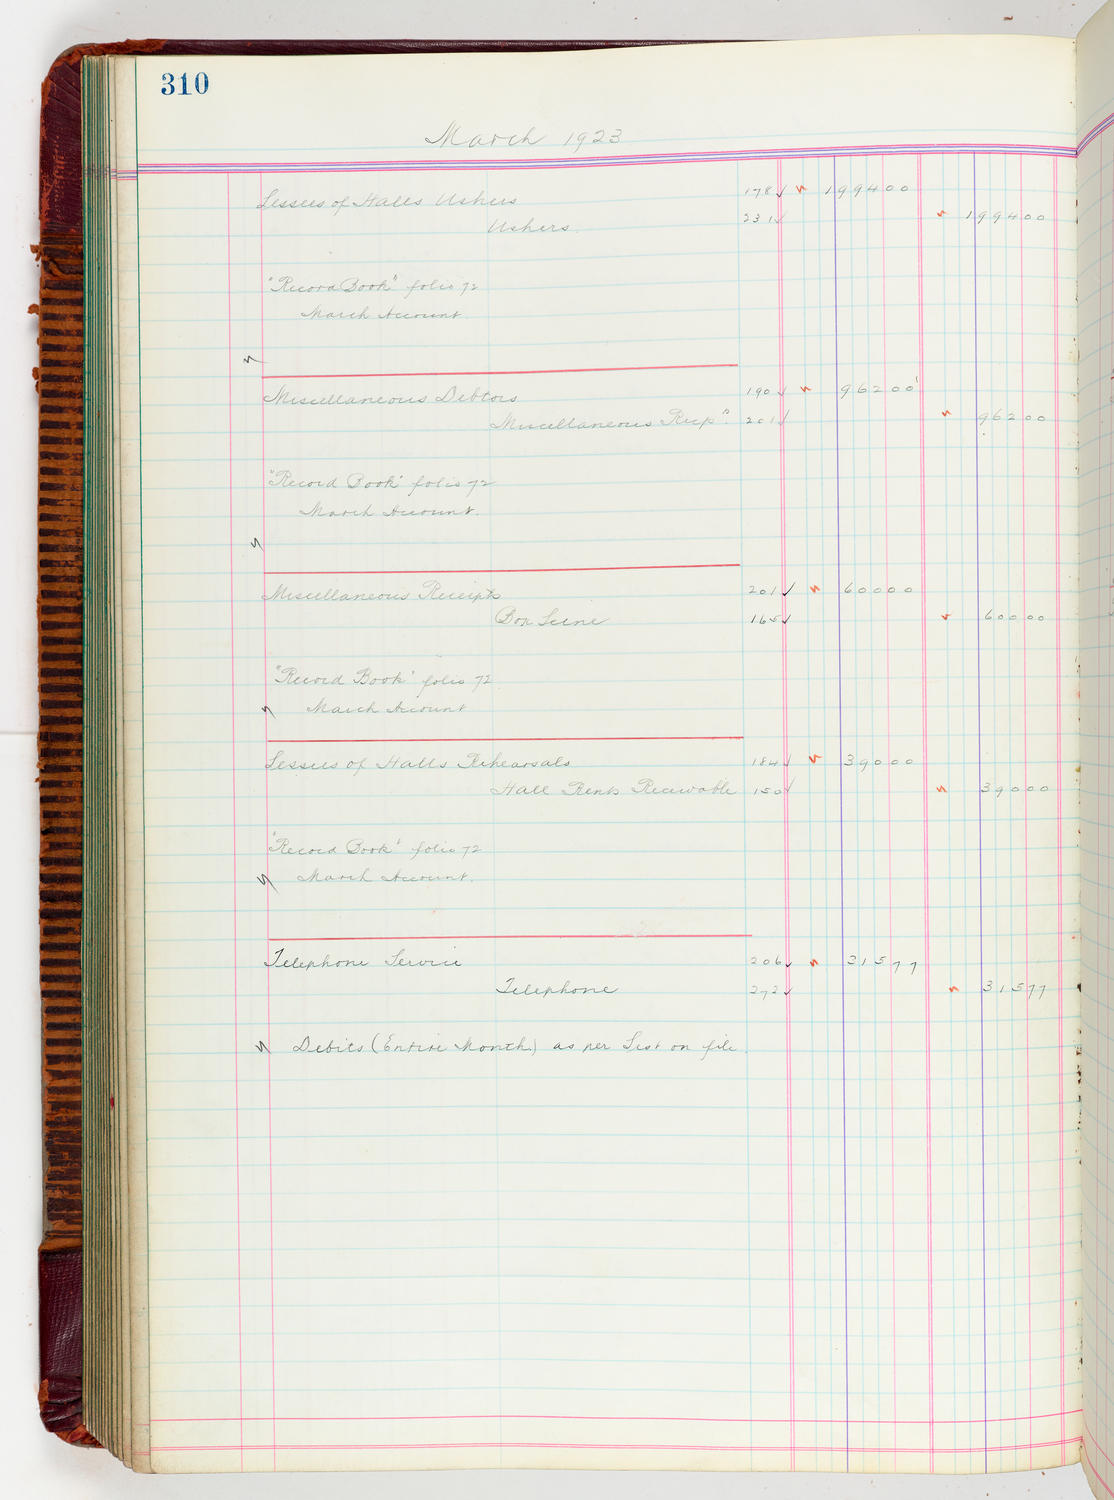 310
March 1923
Lessees of Halls Ushers 178 199400
Ushers. 231 199400
"Record Book" folio 72
March Account.
Miscellaneous Debtors 190 96200
Miscellaneous Recp's. 201 96200
"Record Book" folio 72
March Account.
Miscellaneous Receipts 201 60000
Box Scene 165 60000
"Record Book" folio 72
March Account
Lessees of Halls Rehearsals 184 39000
Hall Rents Receivable 150 39000
"Record Book" folio 72
March Account.
Telephone Service 206 31577
Telephone 272 31577
Debits (Entire Month) as per List on file.